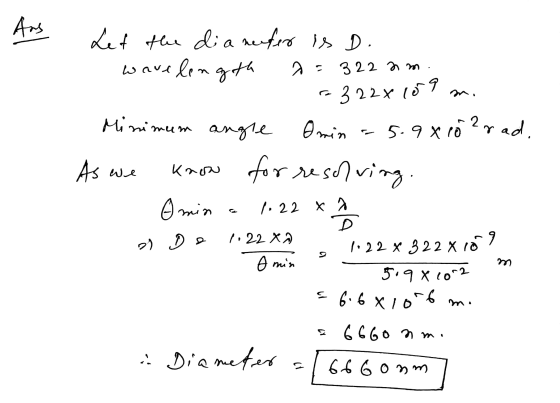 Ans
Let the diameter is D.
wavelength λ = 322 nm.
= 322 × 10⁻⁹ m.
Minimum angle θmin = 5.9 × 10⁻² rad.
As we know for resolving.
θmin = 1.22 × λ/D
⇒ D = 1.22 × λ / θmin = 1.22 × 322 × 10⁻⁹ / 5.9 × 10⁻² m
= 6.6 × 10⁻⁶ m.
= 6660 nm.
∴ Diameter = 6660 nm